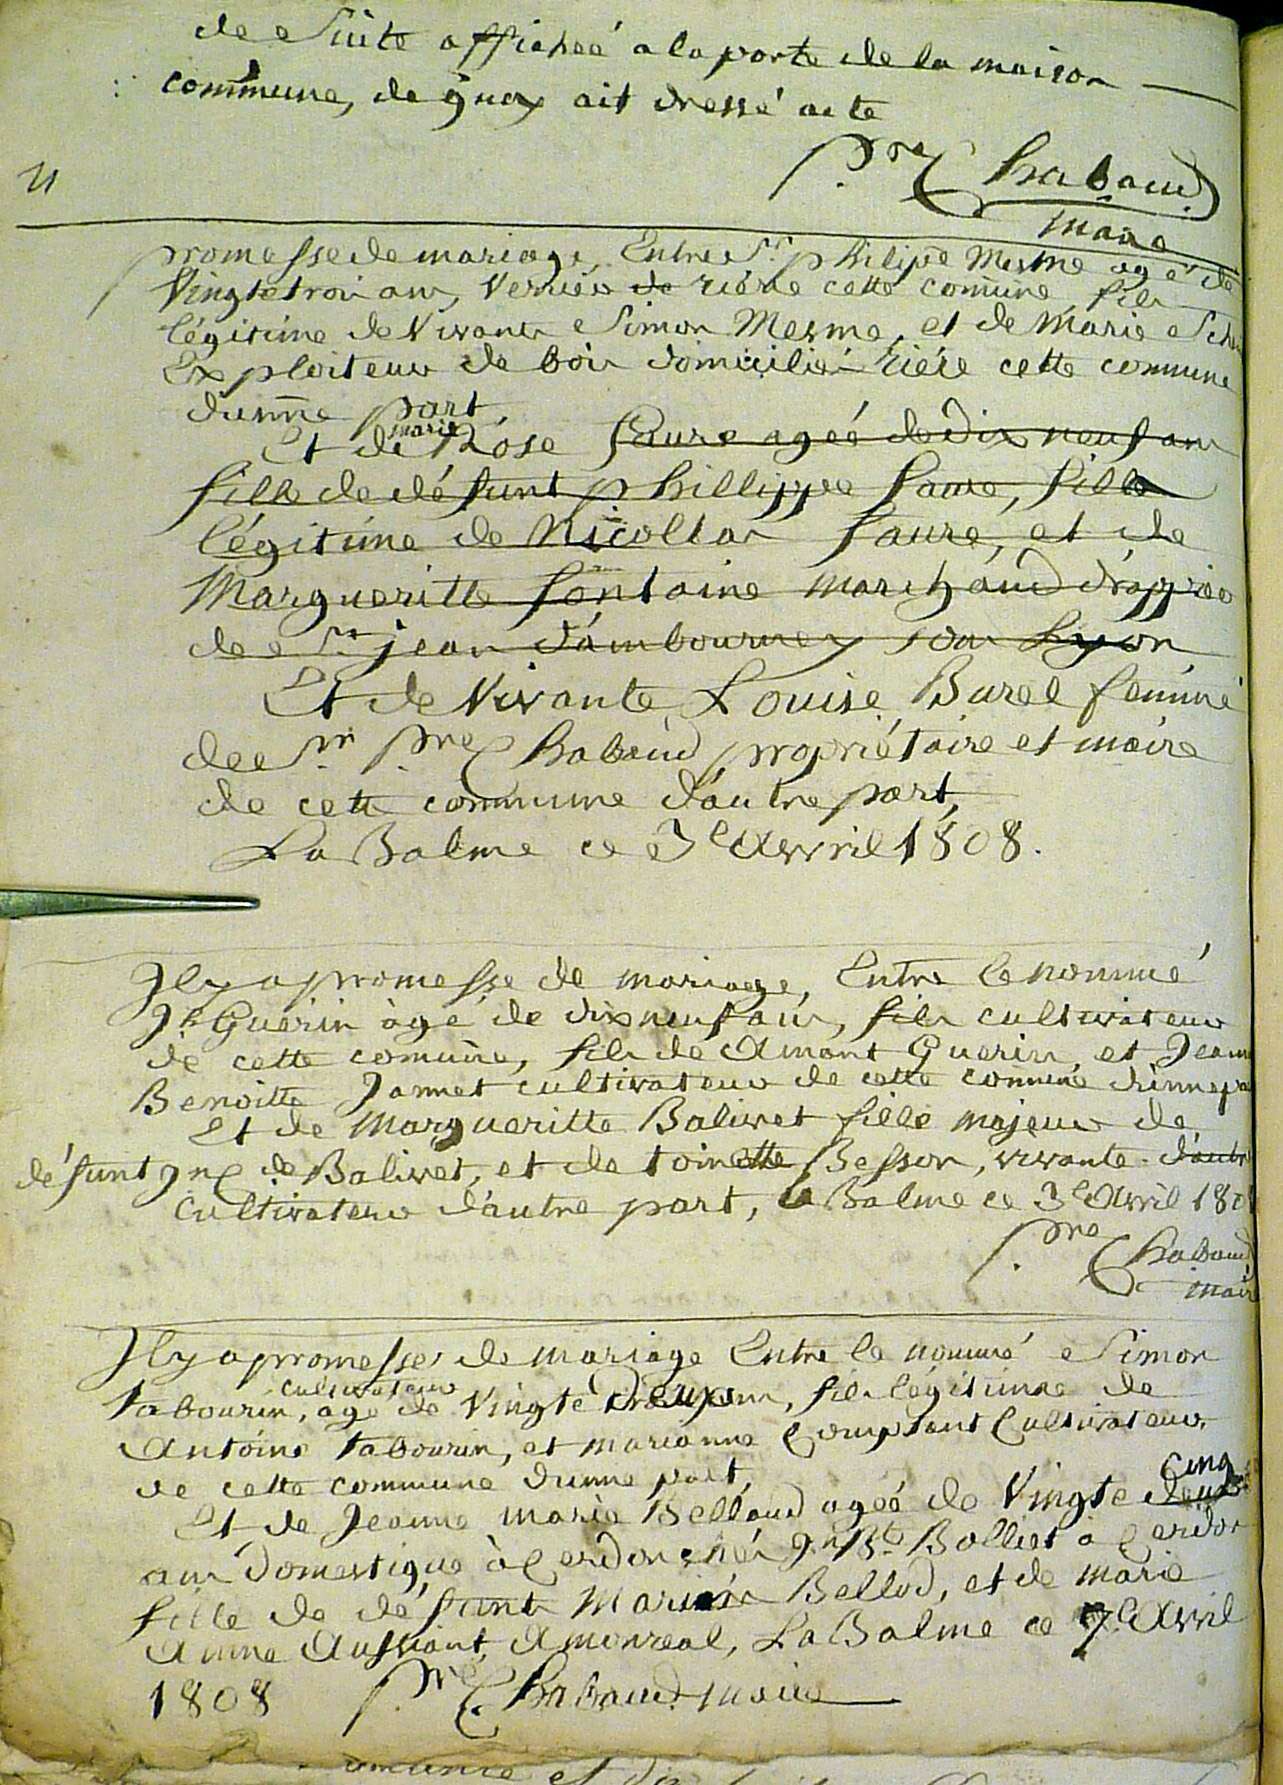 de Suite affichéé a la porte de la maison
commune, de quoy ait dressé acte
Pre Chabaud
maire
promesse de mariage, Entre Sr. philipe Mesme agé de
Vingt et trois ans, Verrier de riére cette comune, fils
légitime de Vivants Simon Mesme, et de Marie
Exploiteur de bois domicilié riére cette commune
dunne part,
Et de marie Rose faure agéé de Dix neuf ans
fille de défunt phillippe faure, fille
légitime de Nicollas faure, et de
Margueritte fontaine marchand drappier
de St jean d'ambournay sous Lyon,
Et de Vivante Louise Burel femme
de Sr. Pre Chabaud propriétaire et maire
de cette commune d'autre part,
La Balme ce 3e Avvril 1808.
Jl y a promesse de mariage, Entre le nommé
Jh Guérin àgé de dix neuf ans, fils cultivateur
de cette comune, fils de Amant Guerin, et Jeanne
Benoitte Jannet cultivateur de cette comune d'unne part
Et de Margueritte Balivet fille majeur de
défunt de Balivet, et de toinette Besson, vivante d'autre
Cultivateur d'autre part, la Balme ce 3e Avril 180
Pre Chabaud
maire
Jl y a promesse de mariage Entre le nommé Simon
cultivateur
tabourin, agé de Vingte deux ans, fils légitime de
Antoine tabourin, et marianne Comptant Cultivateur
de cette commune d'unne part,
cinq
Et de Jeanne marie Belloud agéé de Vingte deux
ans Domestique à Cerdon chés Jn Bte Bolliet à Cerdon
fille de défunt Marin Bellod, et de marie
Anne Aussant A monreal, La Balme ce 7e Avril
1808 Pre Chabaud maire